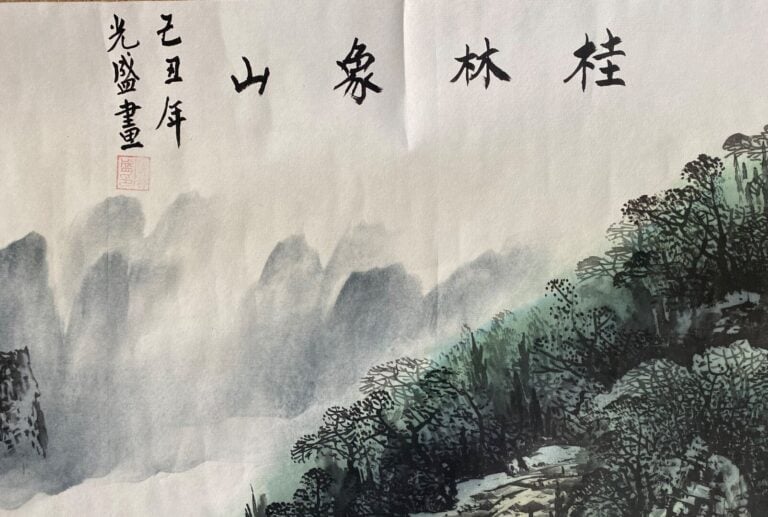 桂林象山
己丑年
光盛畫